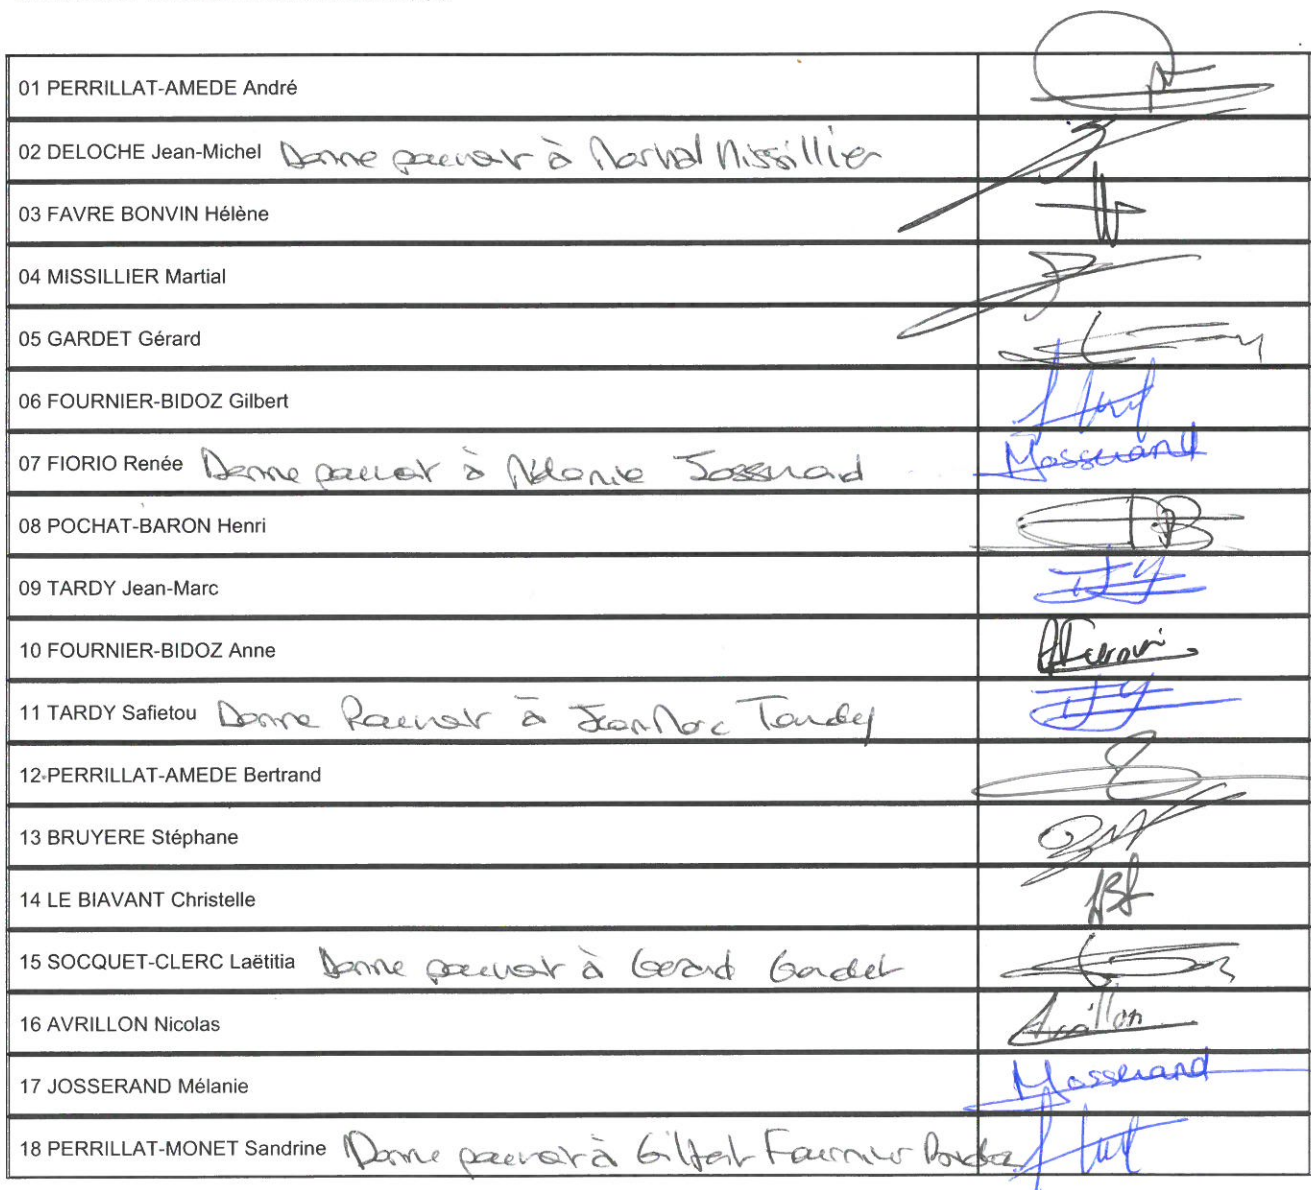 01 PERRILLAT-AMEDE André
02 DELOCHE Jean-Michel Donne pouvoir à Martial Missillier
03 FAVRE BONVIN Hélène
04 MISSILLIER Martial
05 GARDET Gérard
06 FOURNIER-BIDOZ Gilbert
07 FIORIO Renée Donne pouvoir à Mélanie Josserand MJosserand
08 POCHAT-BARON Henri
09 TARDY Jean-Marc
10 FOURNIER-BIDOZ Anne
11 TARDY Safietou Donne Pouvoir à Jean Marc Tardy
12 PERRILLAT-AMEDE Bertrand
13 BRUYERE Stéphane
14 LE BIAVANT Christelle
15 SOCQUET-CLERC Laëtitia Donne pouvoir à Gérard Gardet
16 AVRILLON Nicolas Avrillon
17 JOSSERAND Mélanie MJosserand
18 PERRILLAT-MONET Sandrine Donne pouvoir à Gilbert Fournier Bidoz